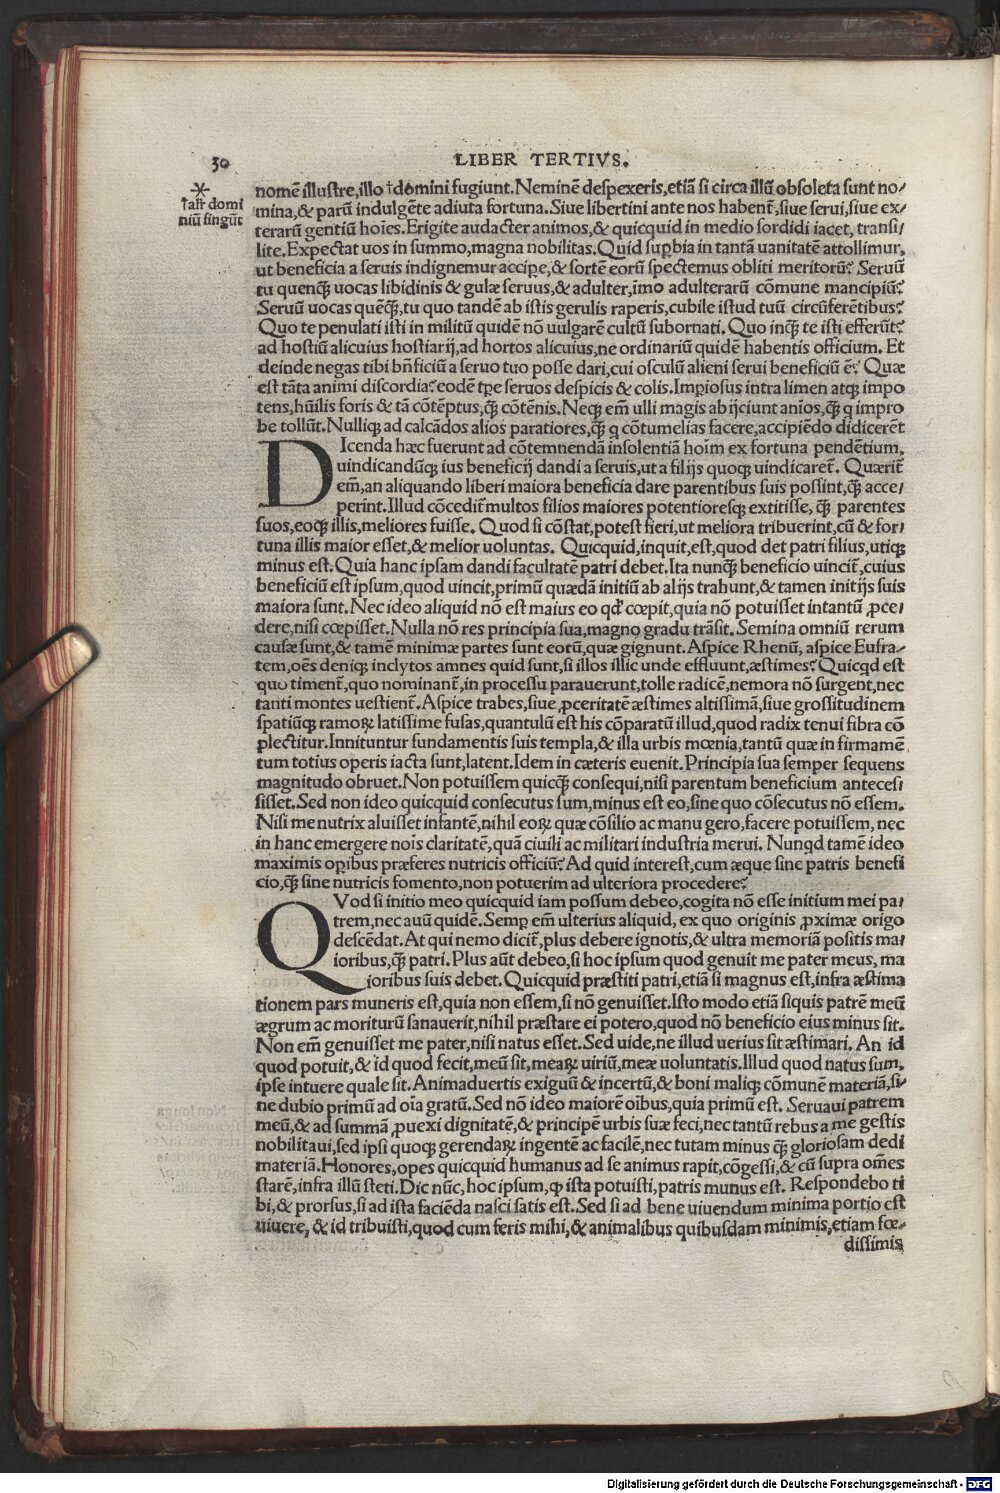 30
LIBER TERTIVS.
*
†alr domi
niũ singuĩt
nomẽ illustre, illo †domini fugiunt. Neminẽ despexeris, etiã si circa illũ obsoleta sunt no/
mina, & parũ indulgẽte adiuta fortuna. Siue libertini ante nos habent̃, siue serui, siue ex/
terarũ gentiũ hoĩes. Erigite audacter animos, & quicquid in medio sordidi iacet, transi/
lite. Expectat uos in summo, magna nobilitas. Quid suꝑbia in tantã uanitatẽ attollimur,
ut beneficia a seruis indignemur acciꝑe, & sortẽ eorũ spectemus obliti meritorũ? Seruũ
tu quenꝗ̃ uocas libidinis & gulæ seruus, & adulter, ĩmo adulterarũ cõmune mancipiũ?
Seruũ uocas quẽꝗ̃, tu quo tandẽ ab istis gerulis raperis, cubile istud tuũ circũferẽtibus?
Quo te penulati isti in militũ quidẽ nõ uulgarẽ cultũ subornati. Quo inꝗ̃ te isti efferũt?
ad hostiũ alicuius hostiarij, ad hortos alicuius, ne ordinariũ quidẽ habentis officium. Et
deinde negas tibi bñficiũ a seruo tuo posse dari, cui osculũ alieni serui beneficiũ ẽ? Quæ
est tãta animi discordia? eodẽ tꝑe seruos despicis & colis. Imꝑiosus intra limen atꝗ impo
tens, hũilis foris & tã cõtẽptus, ꝗ̃ cõtẽnis. Neꝗ em̃ ulli magis abijciunt aĩos, ꝗ̃ q impro
be tollũt. Nulliꝗ ad calcãdos alios paratiores, ꝗ̃ q cõtumelias facere, accipiẽdo didicerẽt
DIcenda hæc fuerunt ad cõtemnendã insolentiã hoĩm ex fortuna pendẽtium,
uindicandũꝗ ius beneficij dandi a seruis, ut a filijs quoꝗ uindicaret̃. Quærit̃
em̃, an aliquando liberi maiora beneficia dare parentibus suis possint, ꝗ̃ acce/
perint. Illud cõcedit̃ multos filios maiores potentioresꝗ extitisse, ꝗ̃ parentes
suos, eoꝗ illis, meliores fuisse. Quod si cõstat, potest fieri, ut meliora tribuerint, cũ & for/
tuna illis maior esset, & melior uoluntas. Quicquid, inquit, est, quod det patri filius, utiꝗ
minus est. Quia hanc ipsam dandi facultatẽ patri debet. Ita nunꝗ̃ beneficio uincit̃, cuius
beneficiũ est ipsum, quod uincit, primũ quædã initiũ ab alijs trahunt, & tamen initijs suis
maiora sunt. Nec ideo aliquid nõ est maius eo qđ cœpit, quia nõ potuisset intantũ ꝓce/
dere, nisi cœpisset. Nulla nõ res principia sua, magno gradu trãsit. Semina omniũ rerum
causæ sunt, & tamẽ minimæ partes sunt eorũ, quæ gignunt. Aspice Rhenũ, aspice Eufra/
tem, oẽs deniꝗ inclytos amnes quid sunt, si illos illic unde effluunt, æstimes? Quicqd est
quo timent̃, quo nominant̃, in processu parauerunt, tolle radicẽ, nemora nõ surgent, nec
tanti montes uestient̃. Aspice trabes, siue ꝓceritatẽ æstimes altissimã, siue grossitudinem
spatiũꝗ ramoꝝ latissime fusas, quantulũ est his cõparatũ illud, quod radix tenui fibra cõ
plectitur. Innituntur fundamentis suis templa, & illa urbis mœnia, tantũ quæ in firmamẽ
tum totius operis iacta sunt, latent. Idem in cæteris euenit. Principia sua semper sequens
magnitudo obruet. Non potuissem quicꝗ̃ consequi, nisi parentum beneficium antecesi
sisset. Sed non ideo quicquid consecutus sum, minus est eo, sine quo cõsecutus nõ essem.
Nisi me nutrix aluisset infantẽ, nihil eoꝝ quæ cõsilio ac manu gero, facere potuissem, nec
in hanc emergere noĩs claritatẽ, quã ciuili ac militari industria merui. Nunqd tamẽ ideo
maximis oꝑibus præferes nutricis officiũ? Ad quid interest, cum æque sine patris benefi
cio, ꝗ̃ sine nutricis fomento, non potuerim ad ulteriora procedere?
QVod si initio meo quicquid iam possum debeo, cogita nõ esse initium mei pa/
trem, nec auũ quidẽ. Semꝑ em̃ ulterius aliquid, ex quo originis ꝓximæ origo
descẽdat. At qui nemo dicit̃, plus debere ignotis, & ultra memoriã positis ma/
ioribus, ꝗ̃ patri. Plus aũt debeo, si hoc ipsum quod genuit me pater meus, ma
ioribus suis debet. Quicquid præstiti patri, etiã si magnus est, infra æstima
tionem pars muneris est, quia non essem, si nõ genuisset. Isto modo etiã siquis patrẽ meũ
ægrum ac moriturũ sanauerit, nihil præstare ei potero, quod nõ beneficio eius minus sit.
Non em̃ genuisset me pater, nisi natus esset. Sed uide, ne illud uerius sit æstimari. An id
quod potuit, & id quod fecit, meũ sit, meaꝝ uiriũ, meæ uoluntatis. Illud quod natus sum,
ipse intuere quale sit. Animaduertis exiguũ & incertũ, & boni maliꝗ cõmunẽ materiã, si/
ne dubio primũ ad oĩa gratũ. Sed nõ ideo maiorẽ oĩbus, quia primũ est. Seruaui patrem
meũ, & ad summã ꝓuexi dignitatẽ, & principẽ urbis suæ feci, nec tantũ rebus a me gestis
nobilitaui, sed ipsi quoꝗ gerendaꝝ ingentẽ ac facilẽ, nec tutam minus ꝗ̃ gloriosam dedi
materiã. Honores, opes quicquid humanus ad se animus rapit, cõgessi, & cũ supra om̃es
starẽ, infra illũ steti. Dic nũc, hoc ipsum, ꝙ ista potuisti, patris munus est. Respondebo ti
bi, & prorsus, si ad ista faciẽda nasci satis est. Sed si ad bene uiuendum minima portio est
uiuere, & id tribuisti, quod cum feris mihi, & animalibus quibusdam minimis, etiam fœ/
dissimis
Digitalisierung gefördert durch die Deutsche Forschungsgemeinschaft - DFG